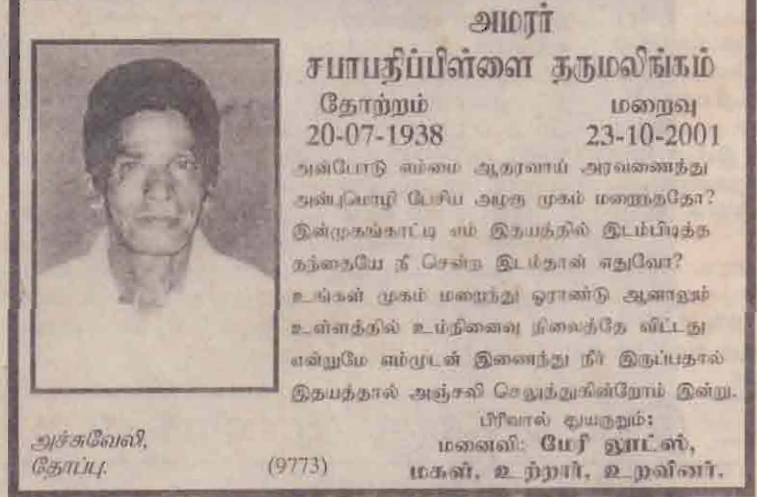 அமரர்
சபாபதிப்பிள்ளை தருமலிங்கம்
தோற்றம் மறைவு
20-07-1938 23-10-2001
அன்போடு எம்மை ஆதரவாய் அரவணைந்து
அன்புமொழி பேசிய அழகு முகம் மறைந்ததோ?
இன்முகங்காட்டி எம் இதயத்தில் இடம்பிடித்த
தந்தையே நீ சென்ற இடம்தான் எதுவோ?
உங்கள் முகம் மறைந்து ஓராண்டு ஆனாலும்
உள்ளத்தில் உம்நினைவு நிலைத்தே விட்டது
என்றுமே எம்முடன் இணைந்து நீர் இருப்பதால்
இதயத்தால் அஞ்சலி செலுத்துகின்றோம் இன்று.
பிரிவால் துயருறும்:
மனைவி: மேரி லூட்ஸ்,
மகள், உற்றார், உறவினர்.
அச்சுவேலி,
தோப்பு. (9773)